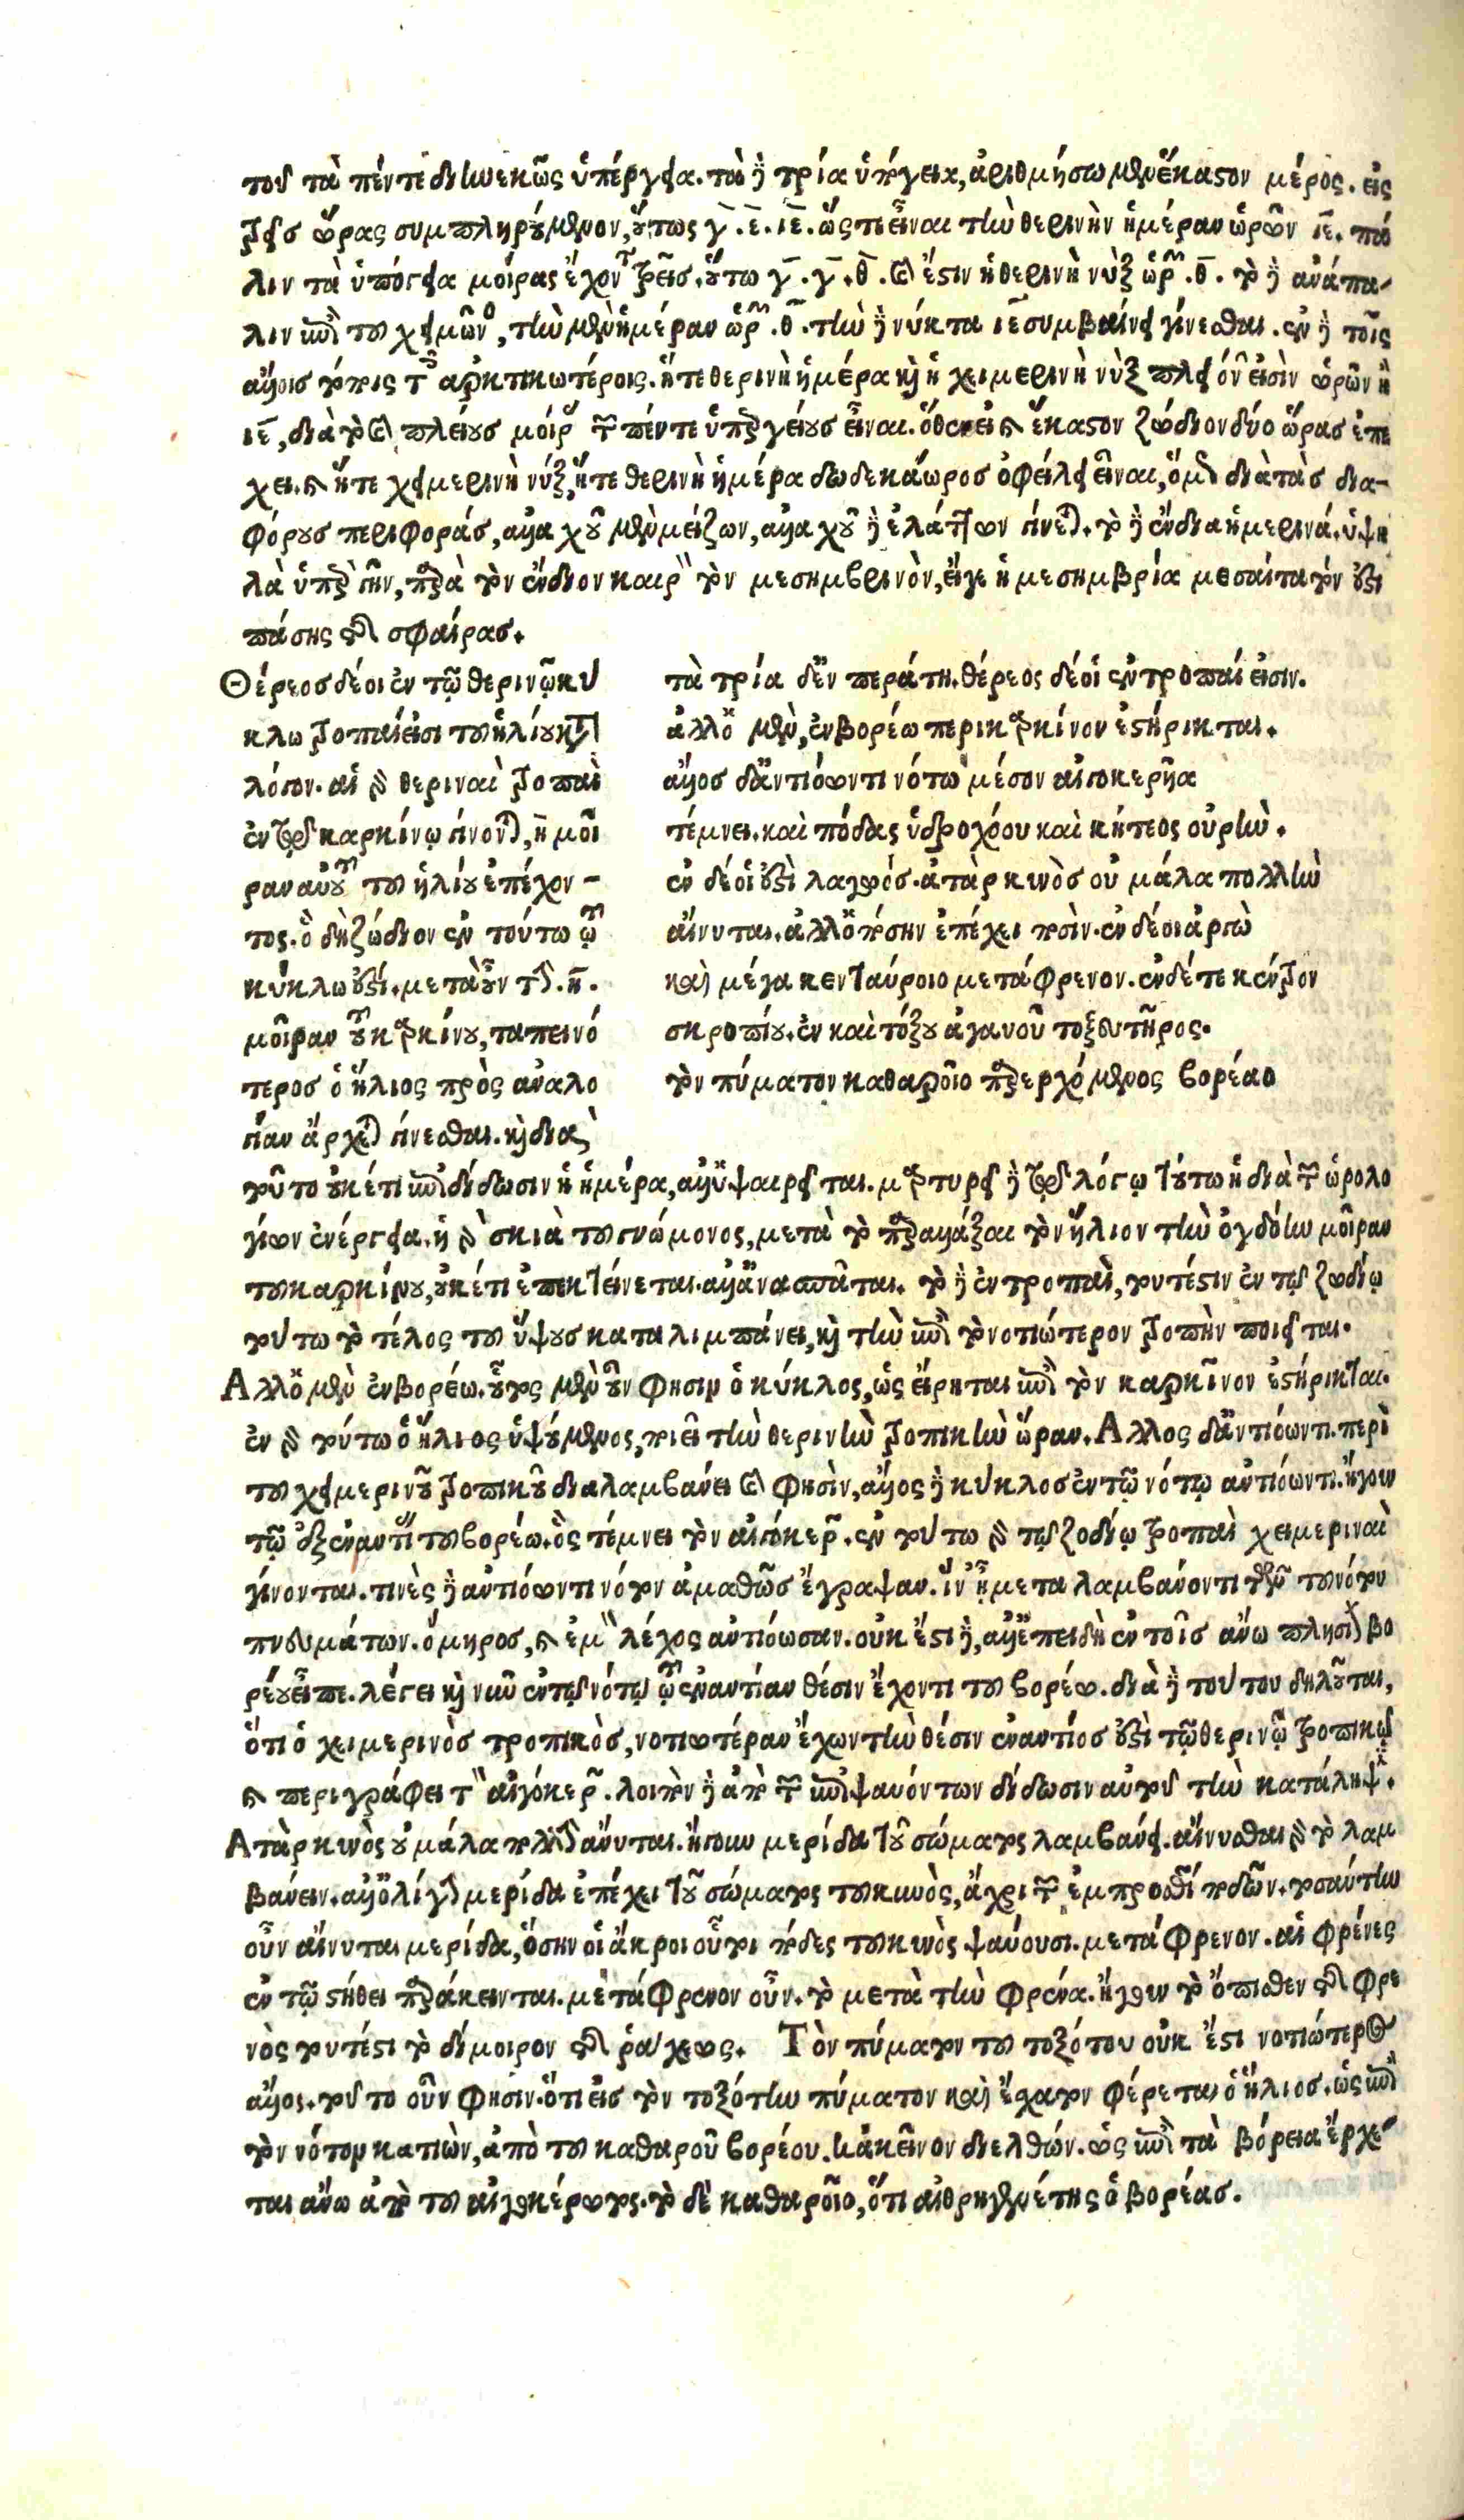 του τὰ πέντε διηνεκῶς ὑπέργεια. τὰ δὲ τρία ὑπόγεια, ἀριθμήσω μὲν ἕκαστον μέρος. εἰς
τρεῖς ὥρας συμπληρούμενον, οὕτως γ. ε. ιε. ὥστε εἶναι τὴν θερινὴν ἡμέραν ὡρῶν ιε. πά
λιν τὰ ὑπόγεια μοίρας ἔχοντα τρεῖς. οὕτω γ. γ. θ. καὶ ἔστιν ἡ θερινὴ νὺξ ὡρῶν θ. τὸ δὲ ἀνάπα-
λιν ἐπὶ τοῦ χειμῶνος, τὴν μὲν ἡμέραν ὡρῶν θ. τὴν δὲ νύκτα ιε συμβαίνει γίνεσθαι. ἐν δὲ τοῖς
ἄλλοις τόποις τοῖς ἀρκτικωτέροις. ἥ τε θερινὴ ἡμέρα καὶ ἡ χειμερινὴ νὺξ πλειόνων εἰσὶν ὡρῶν ἢ
ιε, διὰ τὸ καὶ πλείους μοίρας τῶν πέντε ὑπεργείους εἶναι. ὅθεν εἰ καὶ ἕκαστον ζώδιον δύο ὥρας ἐπέ
χει. καὶ ἥ τε χειμερινὴ νύξ, ἥ τε θερινὴ ἡμέρα δωδεκάωρος ὀφείλει εἶναι, ὅμως διὰ τὰς δια-
φόρους περιφοράς, ἀλλαχοῦ μὲν μείζων, ἀλλαχοῦ δὲ ἐλάττων γίνεται. τὸ δὲ ἔνδια ἡμερινά. ὑψη
λὰ ὑπὲρ γῆν, παρὰ τὸν ἔνδιον καιρὸν τὸν μεσημβρινὸν, εἴγε ἡ μεσημβρία μεσαίτατόν ἐστι
πάσης τῆς σφαίρας.
Θέρεος δέ οἱ ἐν τῷ θερινῷ κύ
κλῳ τροπαί εἰσι τοῦ ἡλίου κατὰ
λόγον. αἱ γὰρ θεριναὶ τροπαὶ
ἐν τῷ καρκίνῳ γίνονται, η μοῖ
ραν αὐτοῦ τοῦ ἡλίου ἐπέχον-
τος. ὃ δὴ ζώδιον ἐν τούτῳ τῷ
κύκλῳ ἐστί. μετὰ οὖν τὴν η.
μοῖραν τοῦ καρκίνου, ταπεινό
τερος ὁ ἥλιος πρὸς ἀναλο
γίαν ἄρχεται γίνεσθαι. καὶ διὰ
τὰ τρία δ᾽ ἐν περάτῃ. θέρεος δέ οἱ ἐν τροπαί εἰσιν.
ἀλλ᾽ ὁ μὲν, ἐν βορέω περὶ καρκίνον ἐστήρικται.
ἄλλος δ᾽ ἀντιόωντι νότῳ μέσον αἰγοκερῆα
τέμνει. καὶ πόδας ὑδροχόου καὶ κήτεος οὐρήν.
ἐν δέ οἱ ἐστὶ λαγωός. ἀτὰρ κυνὸς οὐ μάλα πολλὴν
αἴνυται. ἀλλ᾽ ὁπόσην ἐπέχει ποσίν. ἐν δέ οἱ ἀργὼ
καὶ μέγα κενταύροιο μετάφρενον. ἐν δέ τε κέντρον
σκορπίου. ἐν καὶ τόξου ἀγανοῦ τοξευτῆρος.
τὸν πύματον καθαροῖο παρερχόμενος βορέαο
τοῦτο οὐκέτι ἐπιδίδωσιν ἡ ἡμέρα, ἀλλ᾽ ὑψαιρεῖται. μαρτυρεῖ δὲ τῷ λόγῳ τούτῳ ἡ διὰ τῶν ὡρολο
γίων ἐνέργεια. ἡ γὰρ σκιὰ τοῦ γνώμονος, μετὰ τὸ παραλλάξαι τὸν ἥλιον τὴν ὀγδόην μοῖραν
τοῦ καρκίνου, οὐκέτι ἐπεκτείνεται. ἀλλ᾽ ἀνασπᾶται. τὸ δὲ ἐν τροπαὶ, τουτέστιν ἐν τῷ ζωδίῳ
τούτῳ τὸ τέλος τοῦ ὕψους καταλιμπάνει, καὶ τὴν ἐπὶ τὸ νοτιώτερον τροπὴν ποιεῖται.
Ἀλλ᾽ ὁ μὲν ἐν βορέω. οὗτος μὲν οὖν φησιν ὁ κύκλος, ὡς εἴρηται ἐπὶ τὸν καρκῖνον ἐστήρικται.
ἐν γὰρ τούτῳ ὁ ἥλιος ὑψούμενος, ποιεῖ τὴν θερινὴν τροπικὴν ὥραν. Ἄλλος δ᾽ ἀντιόωντι. περὶ
τοῦ χειμερινοῦ τροπικοῦ διαλαμβάνει καὶ φησὶν, ἄλλος δὲ κύκλος ἐν τῷ νότῳ ἀντιόωντι. ἤγουν
τῷ ἐξεναντίας τοῦ βορέω. ὃς τέμνει τὸν αἰγόκερων. ἐν τούτῳ γὰρ τῷ ζοδίῳ τροπαὶ χειμεριναὶ
γίνονται. τινὲς δὲ ἀντιόωντι νότου ἀμαθῶς ἔγραψαν. ἵν᾽ ᾖ μεταλαμβάνοντι τῶν τοῦ νότου
πνευμάτων. ὅμηρος, καὶ ἐμὸν λέχος ἀντιόωσαν. οὐκ ἔστι δὲ, ἀλλ᾽ ἐπειδὴ ἐν τοῖς ἄνω πλησίον βο
ρέου εἶπε. λέγει καὶ νῦν ἐν τῷ νότῳ τῷ ἐναντίαν θέσιν ἔχοντι τοῦ βορέω. διὰ δὲ τούτου δηλοῦται,
ὅτι ὁ χειμερινὸς τροπικὸς, νοτιωτέραν ἔχων τὴν θέσιν ἐναντίος ἐστὶ τῷ θερινῷ τροπικῷ
καὶ περιγράφει τὸν αἰγόκερων. λοιπὸν δὲ ἀπὸ τῶν ἐπιψαυόντων δίδωσιν αὐτοῦ τὴν κατάληψιν.
Ἀτὰρ κυνὸς οὐ μάλα πολλὴν αἴνυται. ἤγουν μερίδα τοῦ σώματος λαμβάνει. αἴνυσθαι γὰρ τὸ λαμ
βάνειν. ἀλλ᾽ ὀλίγην μερίδα ἐπέχει τοῦ σώματος τοῦ κυνὸς, ἄχρι τῶν ἐμπροσθίων ποδῶν. τοσαύτην
οὖν αἴνυται μερίδα, ὅσην οἱ ἄκροι οὗτοι πόδες τοῦ κυνὸς ψαύουσι. μετάφρενον. αἱ φρένες
ἐν τῷ στήθει παράκεινται. μετάφρενον οὖν. τὸ μετὰ τὴν φρένα. ἤγουν τὸ ὄπισθεν τῆς φρε
νὸς τουτέστι τὸ δίμοιρον τῆς ῥάχεως. Τὸν πύματον τοῦ τοξότου οὐκ ἔστι νοτιώτερος
ἄλλος. τοῦτο οὖν φησιν. ὅτι εἰς τὸν τοξότην πύματον καὶ ἔσχατον φέρεται ὁ ἥλιος. ὡς ἐπὶ
τὸν νότον κατιὼν, ἀπὸ τοῦ καθαροῦ βορέου. κἀκεῖνον διελθών. ὡς ἐπὶ τὰ βόρεια ἔρχε
ται ἄνω ἀπὸ τοῦ αἰγοκέρωτος. τὸ δὲ καθαροῖο, ὅτι αἰθρηγενέτης ὁ βορέας.